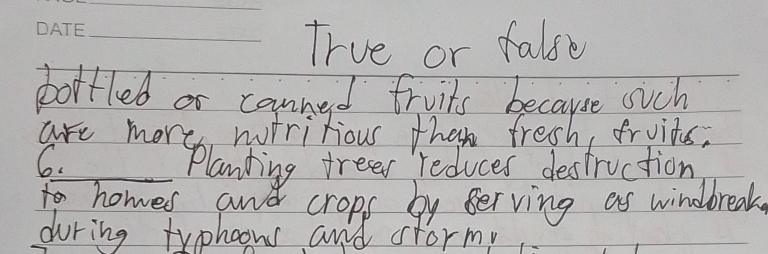 DATE
True or false
bottled or canned fruits because such
are more nutritious than fresh fruits.
6. Planting trees reduces destruction
to homes and crops by serving as windbreak
during typhoons and storm